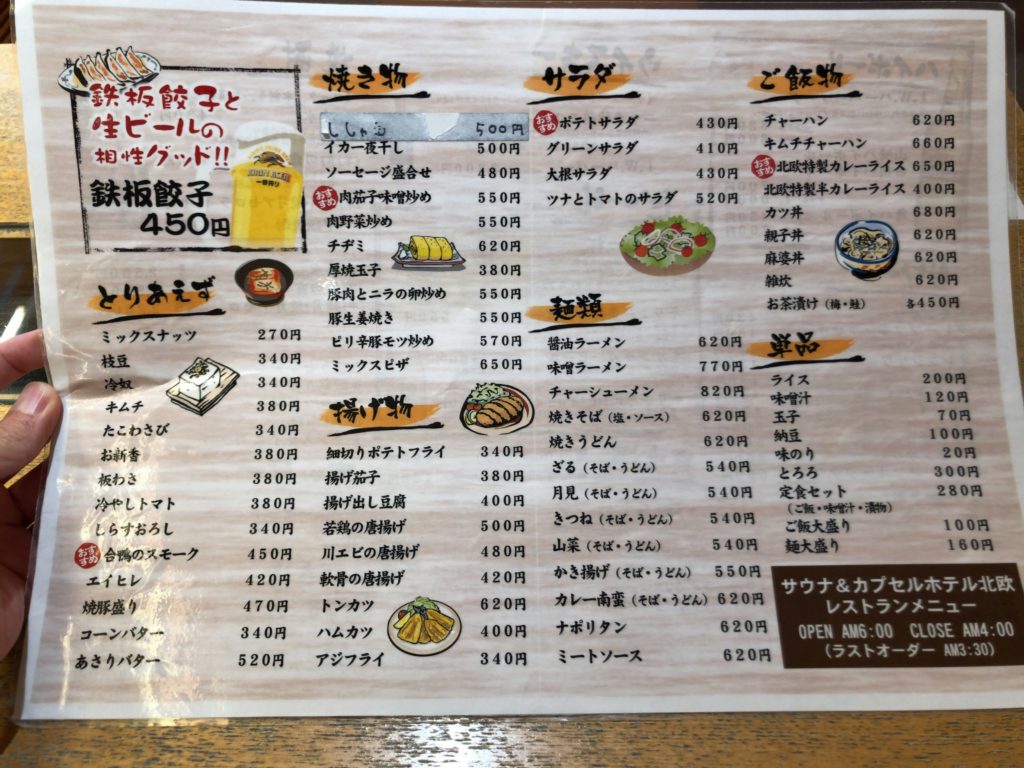 鉄板餃子と
生ビールの
相性グッド!!
鉄板餃子
450円
KIRIN BEER
一番搾り
とりあえず
ミックスナッツ 270円
枝豆 340円
冷奴 340円
キムチ 380円
たこわさび 340円
お新香 380円
板わさ 380円
冷やしトマト 380円
しらすおろし 340円
おすすめ 合鴨のスモーク 450円
エイヒレ 420円
焼豚盛り 470円
コーンバター 340円
あさりバター 520円
焼き物
ししゃも 500円
イカ一夜干し 500円
ソーセージ盛合せ 480円
おすすめ 肉茄子味噌炒め 550円
肉野菜炒め 550円
チヂミ 620円
厚焼玉子 380円
豚肉とニラの卵炒め 550円
豚生姜焼き 550円
ピリ辛豚モツ炒め 570円
ミックスピザ 650円
揚げ物
細切りポテトフライ 340円
揚げ茄子 380円
揚げ出し豆腐 400円
若鶏の唐揚げ 500円
川エビの唐揚げ 480円
軟骨の唐揚げ 420円
トンカツ 620円
ハムカツ 400円
アジフライ 340円
サラダ
おすすめ ポテトサラダ 430円
グリーンサラダ 410円
大根サラダ 430円
ツナとトマトのサラダ 520円
麺類
醤油ラーメン 620円
味噌ラーメン 770円
チャーシューメン 820円
焼きそば(塩・ソース) 620円
焼きうどん 620円
ざる(そば・うどん) 540円
月見(そば・うどん) 540円
きつね(そば・うどん) 540円
山菜(そば・うどん) 540円
かき揚げ(そば・うどん) 550円
カレー南蛮(そば・うどん) 620円
ナポリタン 620円
ミートソース 620円
ご飯物
チャーハン 620円
キムチチャーハン 660円
おすすめ 北欧特製カレーライス 650円
北欧特製半カレーライス 400円
カツ丼 680円
親子丼 620円
麻婆丼 620円
雑炊 620円
お茶漬け(梅・鮭) 各450円
単品
ライス 200円
味噌汁 120円
玉子 70円
納豆 100円
味のり 20円
とろろ 300円
定食セット 280円
(ご飯・味噌汁・漬物)
ご飯大盛り 100円
麺大盛り 160円
サウナ&カプセルホテル北欧
レストランメニュー
OPEN AM6:00 CLOSE AM4:00
(ラストオーダー AM3:30)